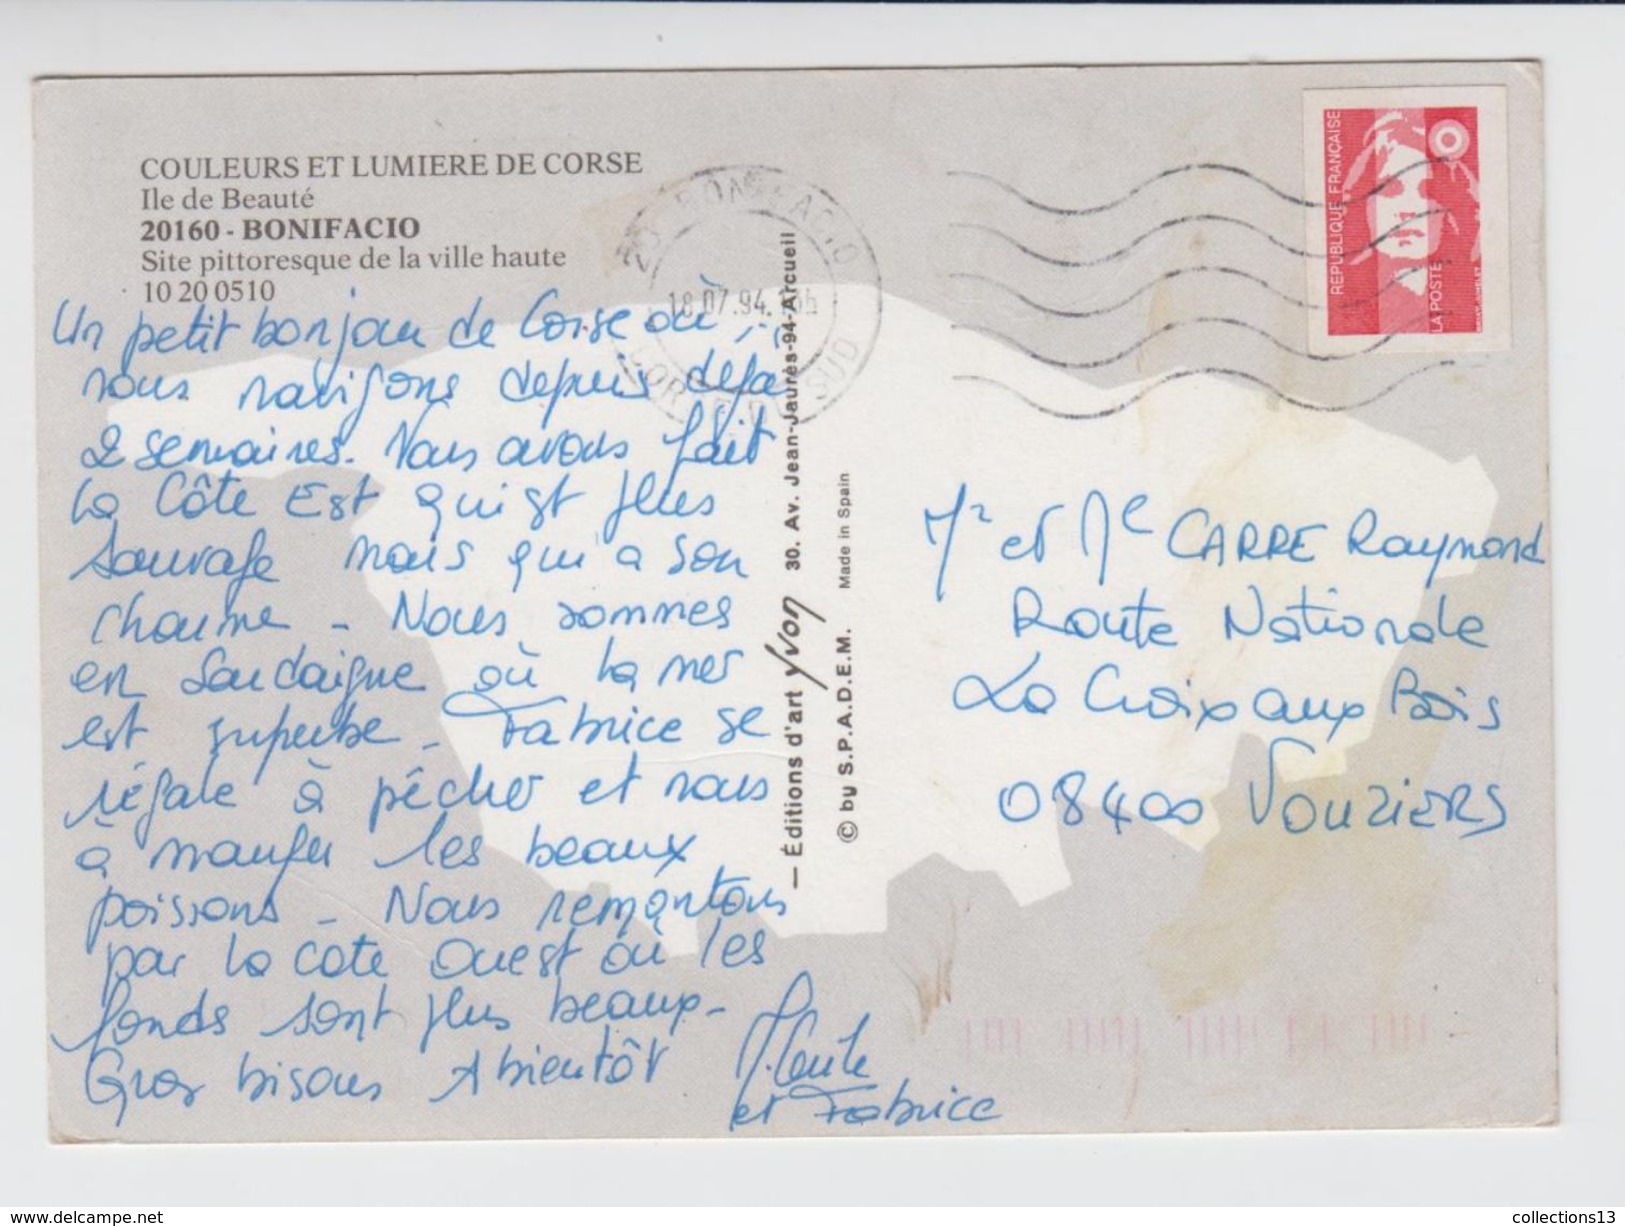 COULEURS ET LUMIERE DE CORSE
Ile de Beauté
20160 - BONIFACIO
Site pittoresque de la ville haute
10 20 0510
Un petit bonjour de Corse où
nous navigons depuis déjà
2 semaines. Nous avons fait
la Côte Est qui est plus
sauvage mais qui a son
charme - Nous sommes
en Sardaigne où la mer
est superbe - Fabrice se
régale à pêcher et nous
à manger les beaux
poissons - Nous remontons
par la cote Ouest où les
fonds sont plus beaux -
Gros bisous A bientôt
et Fabrice
20 BONIFACIO
18.07.94
CORSE DU SUD
— Éditions d'art Yvon 30. Av. Jean-Jaurès-94-Arcueil
© by S.P.A.D.E.M. Made in Spain
REPUBLIQUE FRANÇAISE
LA POSTE
Mr et Me CARRE Raymond
Route Nationale
La Croix aux Bois
08400 VOUZIERS
www.delcampe.net
collections13